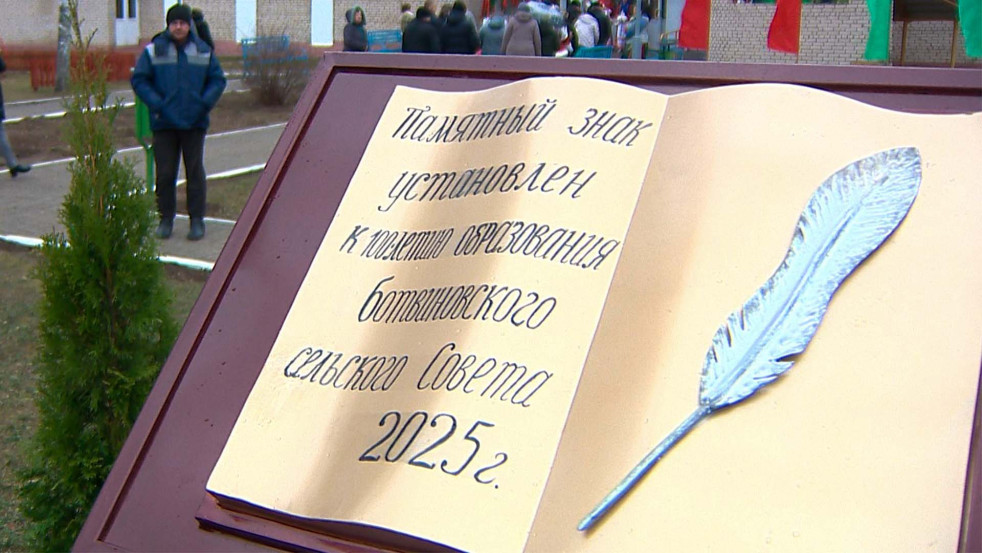 Памятный знак
установлен
к 100летию образования
ботвиновского
сельского Совета
2025г.